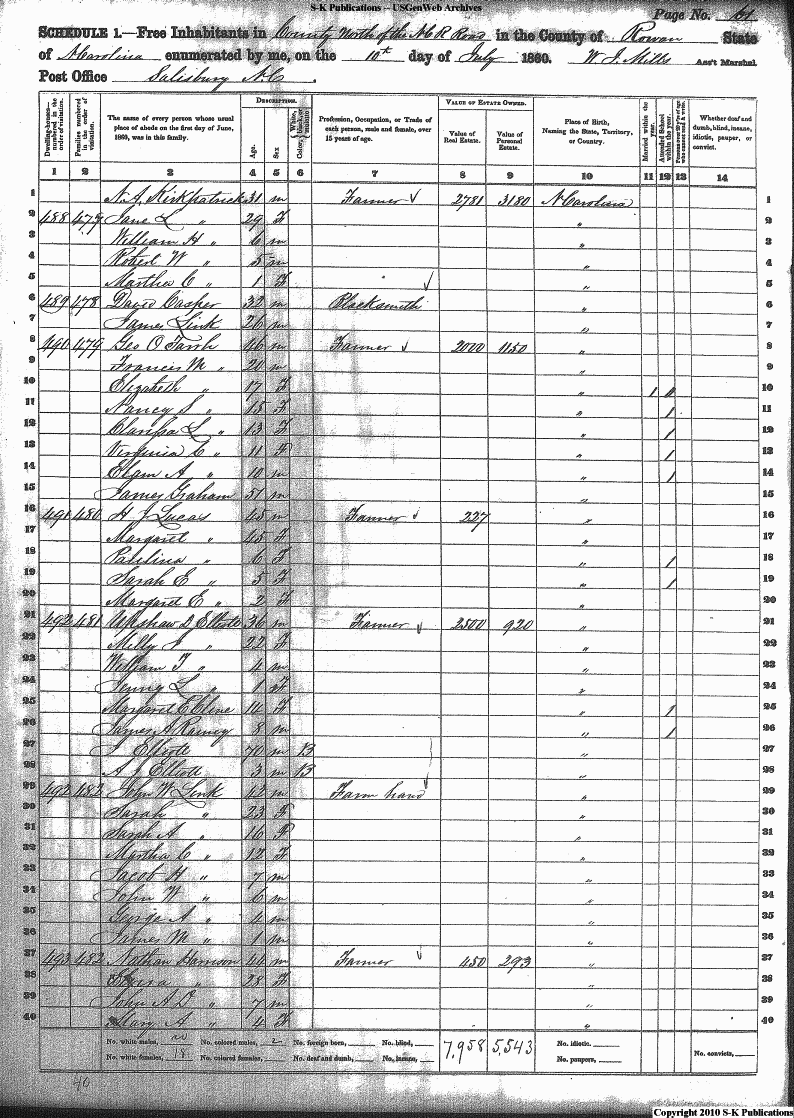 S-K Publications -- USGenWeb Archives
Page No. 61
SCHEDULE 1.—Free Inhabitants in County North of the N C R Road in the County of Rowan State
of N Carolina enumerated by me, on the 10th day of July 1860. W J Mills Ass't Marshal.
Post Office Salisbury N.C.
DESCRIPTION. VALUE OF ESTATE OWNED.
Dwelling-houses—numbered in the order of visitation. Families numbered in the order of visitation. The name of every person whose usual place of abode on the first day of June, 1860, was in this family. Age. Sex Color, White, black, or mulatto Profession, Occupation, or Trade of each person, male and female, over 15 years of age. Value of Real Estate. Value of Personal Estate. Place of Birth, Naming the State, Territory, or Country. Married within the year. Attended School within the year. Persons over 20 y'rs of age who cannot read & write. Whether deaf and dumb, blind, insane, idiotic, pauper, or convict.
1 2 3 4 5 6 7 8 9 10 11 12 13 14
1 N. J. Kirkpatrick 31 m Farmer 2781 3180 N Carolina 1
2 488 477 Jane L " 29 F " 2
3 William H " 6 m " 3
4 Robert W " 5 m " 4
5 Martha C " 1 F " 5
6 489 478 David Casher 32 m Blacksmith " 6
7 James Link 26 m " 7
8 490 479 Geo O Tarrh 46 m Farmer 2000 1150 " 8
9 Francis M " 20 m " 9
10 Elizabeth " 17 F " 1 10
11 Nancy S " 15 F " 1 11
12 Clarissa L " 13 F " 1 12
13 Virginia C " 11 F " 1 13
14 Elam A " 10 m " 1 14
15 James Graham 51 m " 15
16 491 480 H J Lucas 45 m Farmer 227 " 16
17 Margaret " 45 F " 17
18 Paulina " 6 F " 1 18
19 Sarah E " 5 F " 1 19
20 Margaret E " 2 F " 20
21 492 481 D Elliott 36 m Farmer 2500 920 " 21
22 Milly J " 22 F " 22
23 William T " 4 m " 23
24 Jenny L " 1 F " 24
25 Margaret E Cline 14 F " 1 25
26 James A Rainey 8 m " 1 26
27 J Elliott 70 m B " 27
28 A J Elliott 3 m B " 28
29 492 482 John W Link 42 m Farm hand " 29
30 Sarah " 23 F " 30
31 Sarah A " 16 F " 31
32 Martha C " 12 F " 32
33 Jacob H " 7 m " 33
34 John W " 6 m " 34
35 George A " 4 m " 35
36 James M " 1 m " 36
37 493 482 Nathan Harrison 44 m Farmer 450 293 " 37
38 " 28 F " 38
39 John A D " 7 m " 39
40 Mary A " 4 F " 40
No. white males, 20 No. colored males, 2 No. foreign born, No. blind, 7,958 5,543 No. idiotic. No. convicts,
No. white females, 18 No. colored females, No. deaf and dumb, No. insane, No. paupers,
40
Copyright 2010 S-K Publications